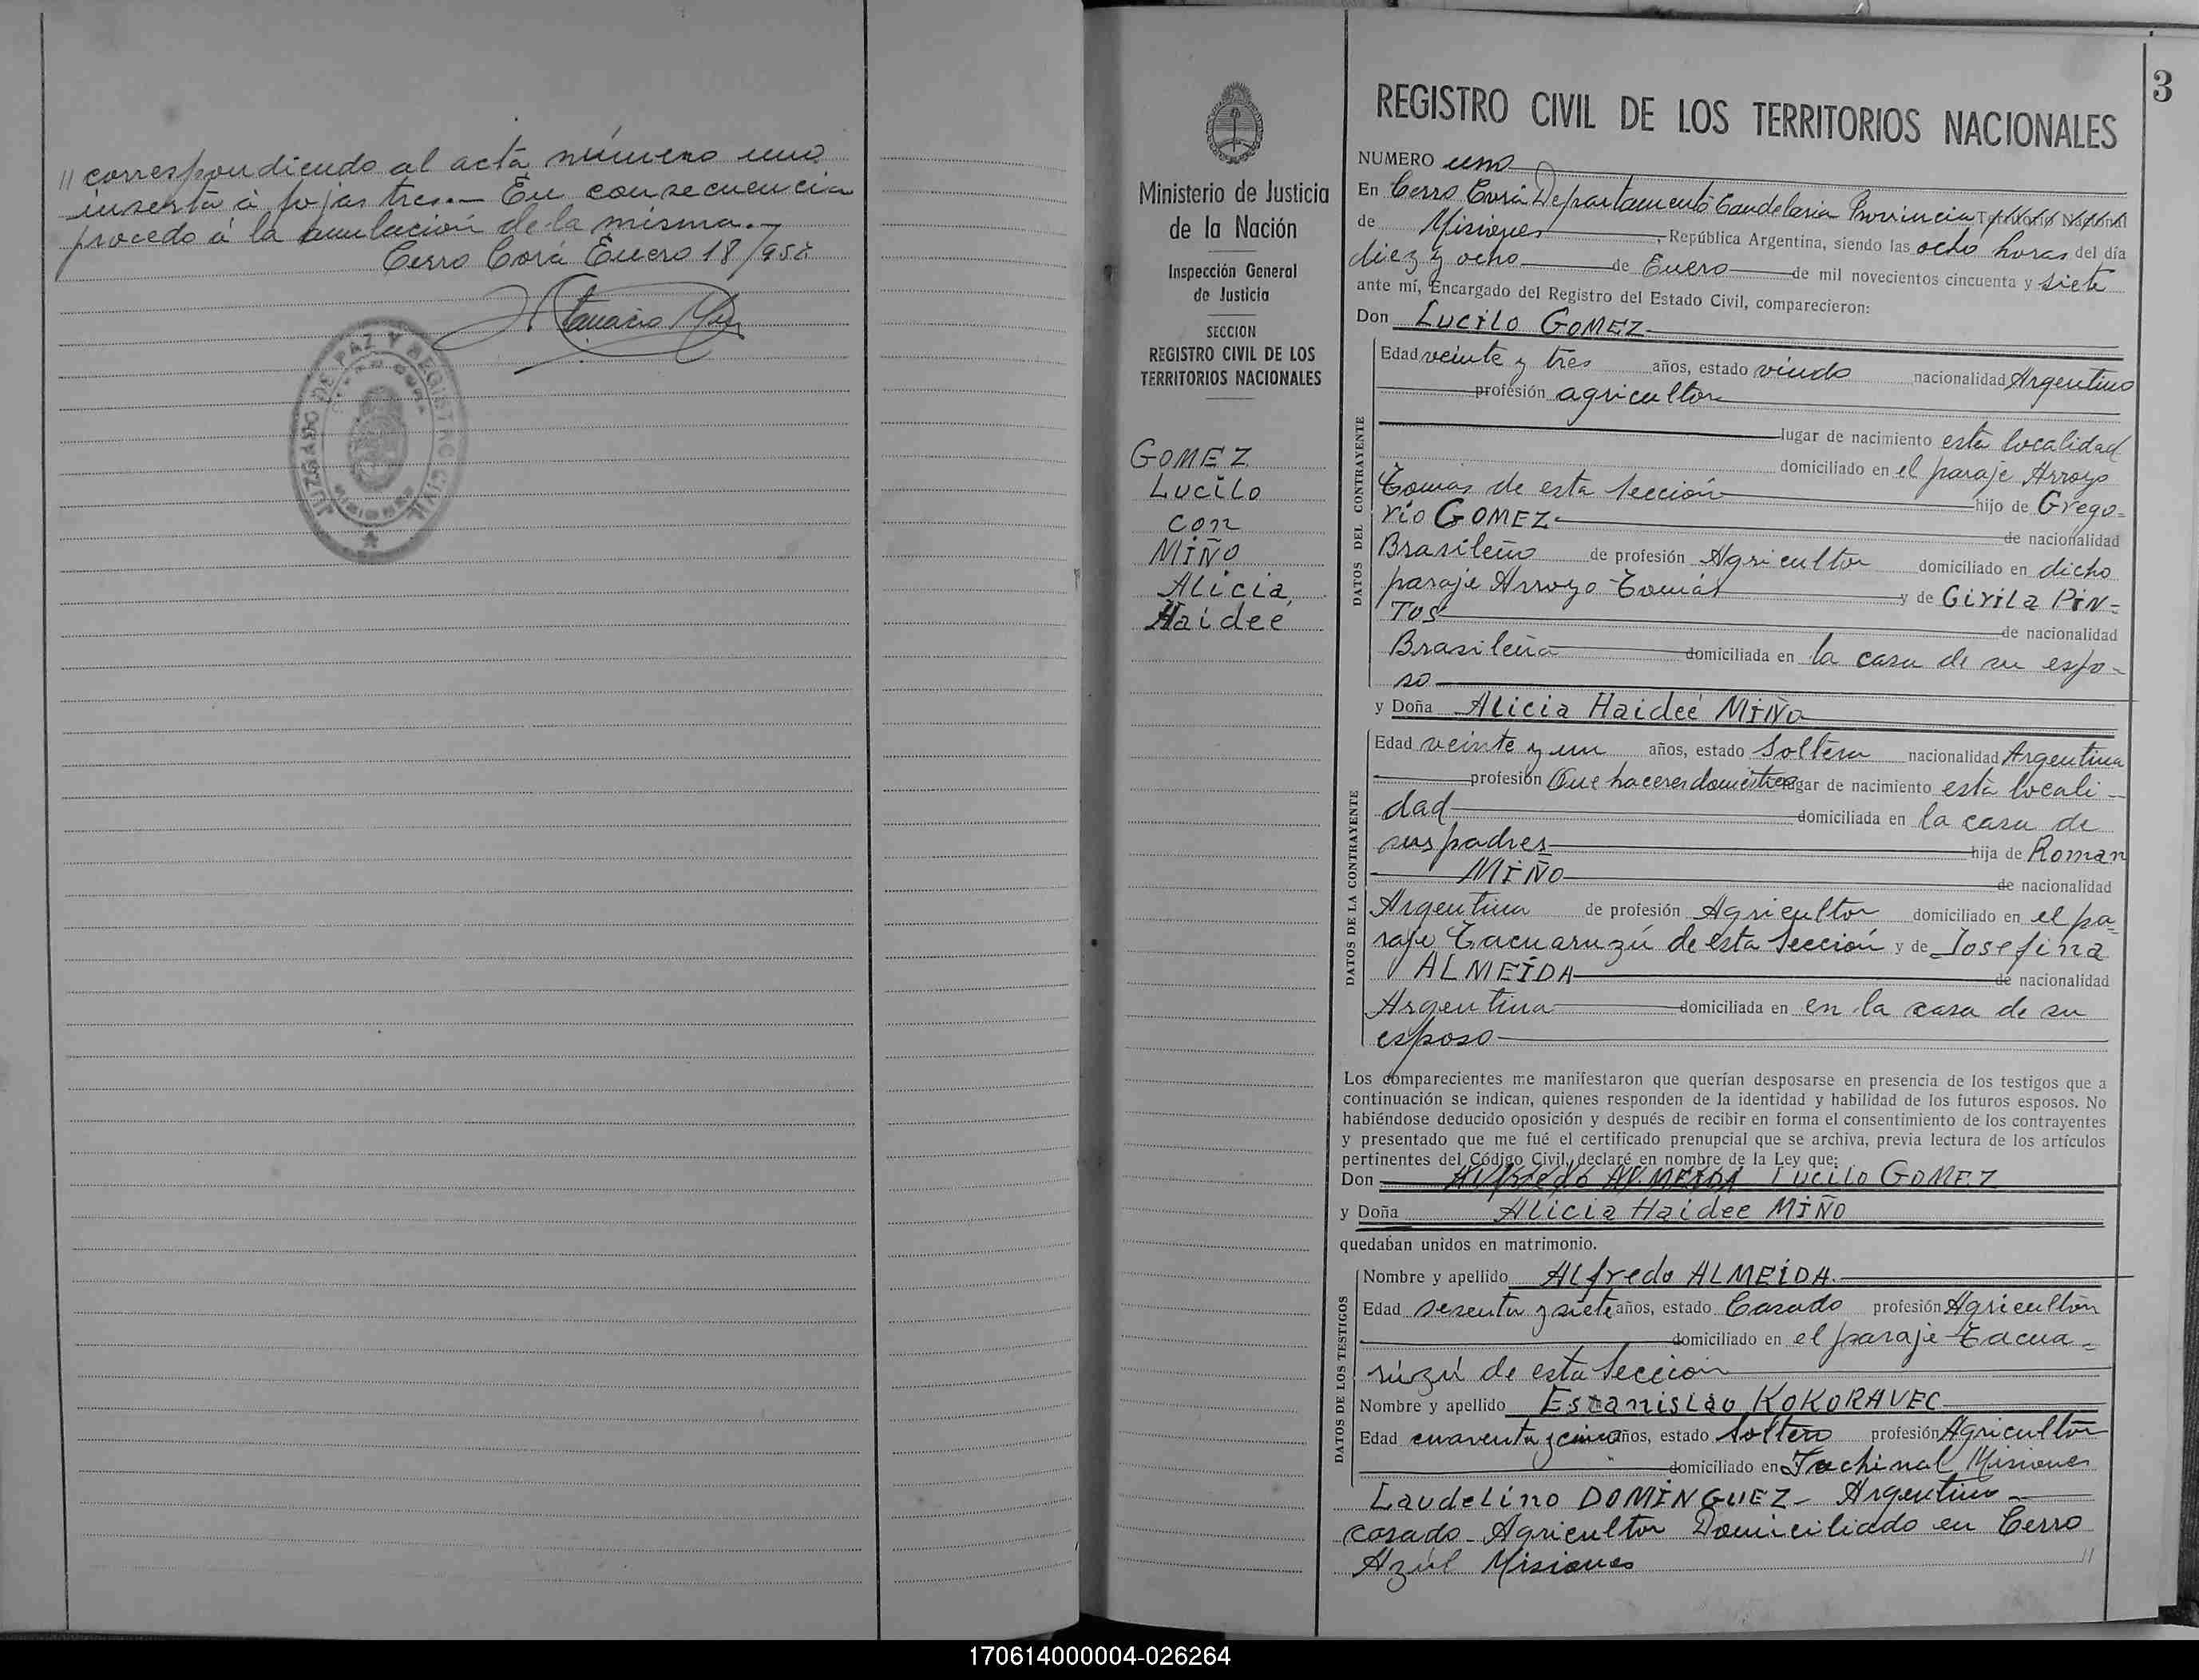 // correspondiendo al acta número uno
inserta á fojas tres.— En consecuencia
procedo á la anulación de la misma.-
Cerro Corá Enero 18/958
JUZGADO DE PAZ Y REGISTRO CIVIL
MISIONES
Ministerio de Justicia
de la Nación
Inspección General
de Justicia
SECCION
REGISTRO CIVIL DE LOS
TERRITORIOS NACIONALES
GOMEZ
Lucilo
con
MIÑO
Alicia
Haideé
3
REGISTRO CIVIL DE LOS TERRITORIOS NACIONALES
NUMERO uno
En Cerro Corá Departamento Candelaria Provincia Territorio Nacional
de Misiones, República Argentina, siendo las ocho horas del día
diez y ocho de Enero de mil novecientos cincuenta y siete
ante mí, Encargado del Registro del Estado Civil, comparecieron:
Don Lucilo GOMEZ
DATOS DEL CONTRAYENTE
Edad veinte y tres años, estado viudo nacionalidad Argentino
profesión agricultor
lugar de nacimiento esta localidad
domiciliado en el paraje Arroyo
Tomás de esta Sección hijo de Grego=
rio GOMEZ de nacionalidad
Brasileño de profesión Agricultor domiciliado en dicho
paraje Arroyo Tomás y de Girila PIN=
TOS de nacionalidad
Brasileña domiciliada en la casa de su espo-
so
y Doña Alicia Haideé MIÑO
DATOS DE LA CONTRAYENTE
Edad veinte y un años, estado Soltera nacionalidad Argentina
profesión Que haceres domésticos lugar de nacimiento esta locali-
dad domiciliada en la casa de
sus padres hija de Roman
MIÑO de nacionalidad
Argentina de profesión Agricultor domiciliado en el pa=
raje Tacuaruzú de esta Sección y de Josefina
ALMEIDA de nacionalidad
Argentina domiciliada en en la casa de su
esposo
Los comparecientes me manifestaron que querían desposarse en presencia de los testigos que a
continuación se indican, quienes responden de la identidad y habilidad de los futuros esposos. No
habiéndose deducido oposición y después de recibir en forma el consentimiento de los contrayentes
y presentado que me fué el certificado prenupcial que se archiva, previa lectura de los artículos
pertinentes del Código Civil, declaré en nombre de la Ley que:
Don Alfredo ALMEIDA Lucilo GOMEZ
y Doña Alicia Haidee MIÑO
quedaban unidos en matrimonio.
DATOS DE LOS TESTIGOS
Nombre y apellido Alfredo ALMEIDA.
Edad sesenta y siete años, estado Casado profesión Agricultor
domiciliado en el paraje Tacua=
rúzú de esta Sección
Nombre y apellido Estanislao KOKORAVEC
Edad cuarenta y cinco años, estado Soltero profesión Agricultor
domiciliado en Fachinal Misiones
Laudelino DOMINGUEZ- Argentino-
casado- Agricultor Domiciliado en Cerro
Azul Misiones //
170614000004-026264